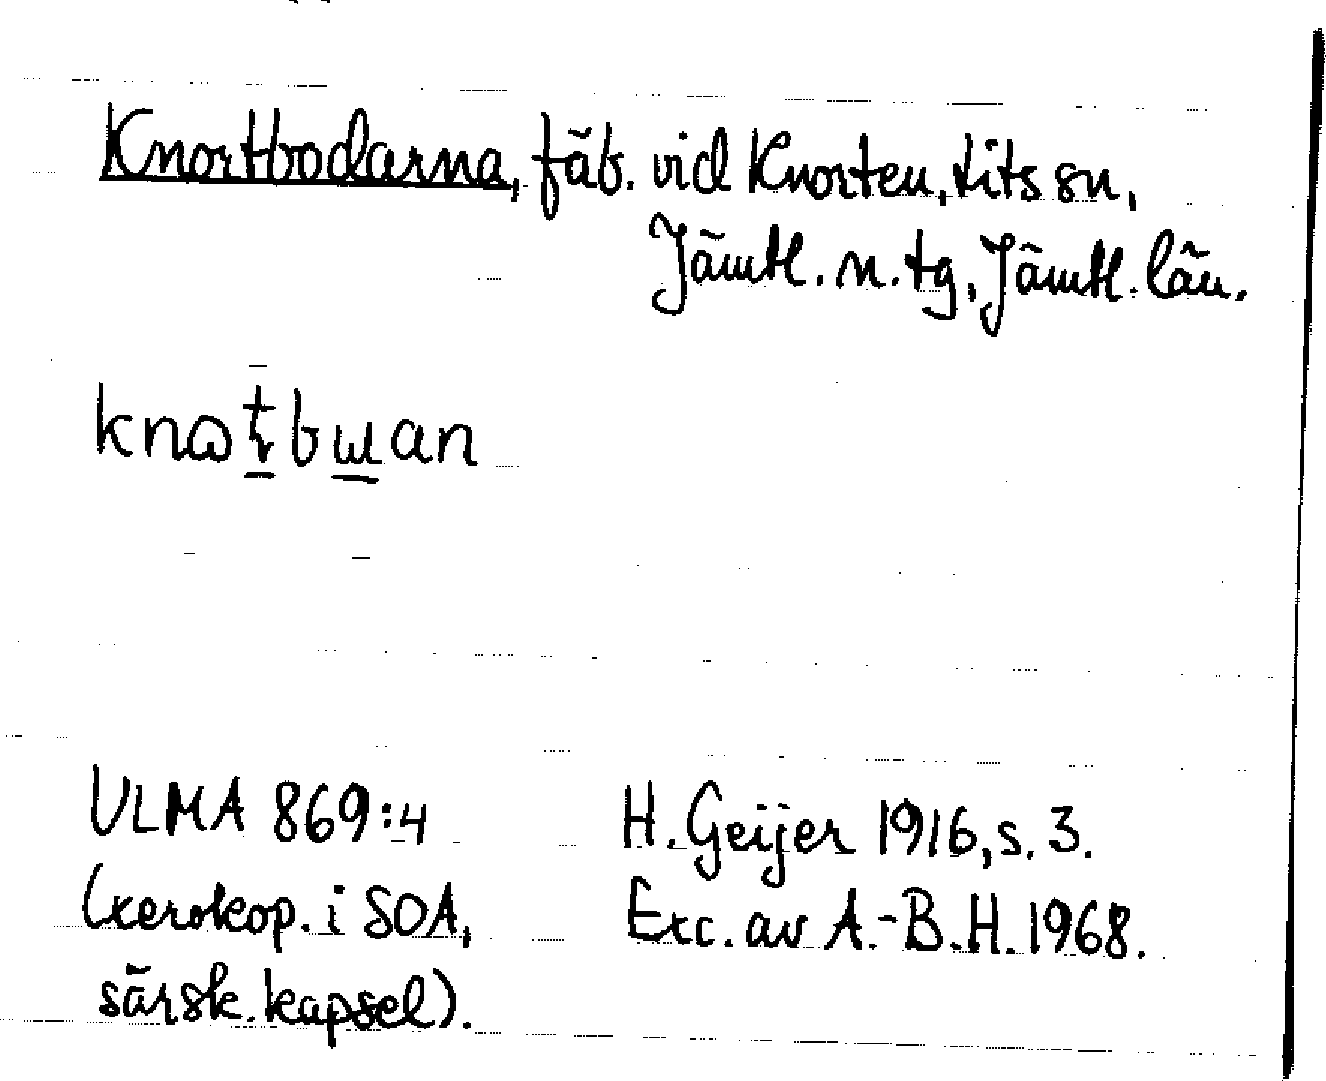 Knortbodarna, fäb. vid Knorten, Lits sn,
Jämtl. n. tg, Jämtl. län.
ULMA 869:4
(xerokop. i SOA,
särsk. kapsel).
H. Geijer 1916, s. 3.
Exc. av A.-B.H. 1968.